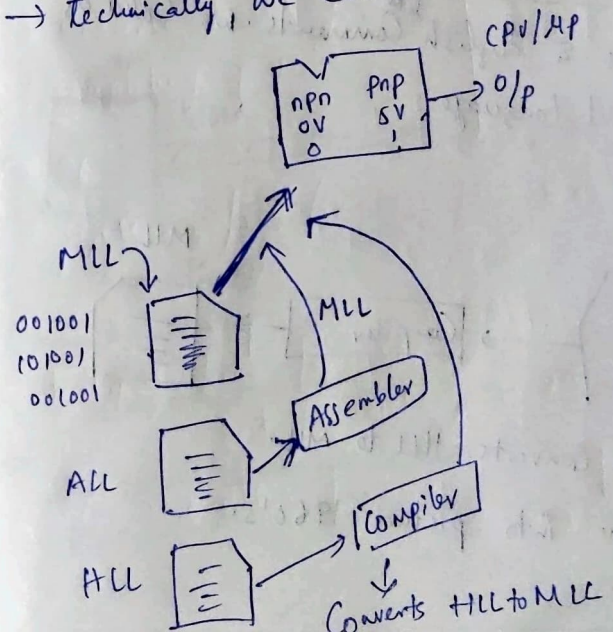 → Technically, we
CPU/MP
npn pnp → O/P
0V 5V
0 1
MLL
001001
101001
001001
MLL
Assembler
ALL
Compiler
HLL
Converts HLL to MLL